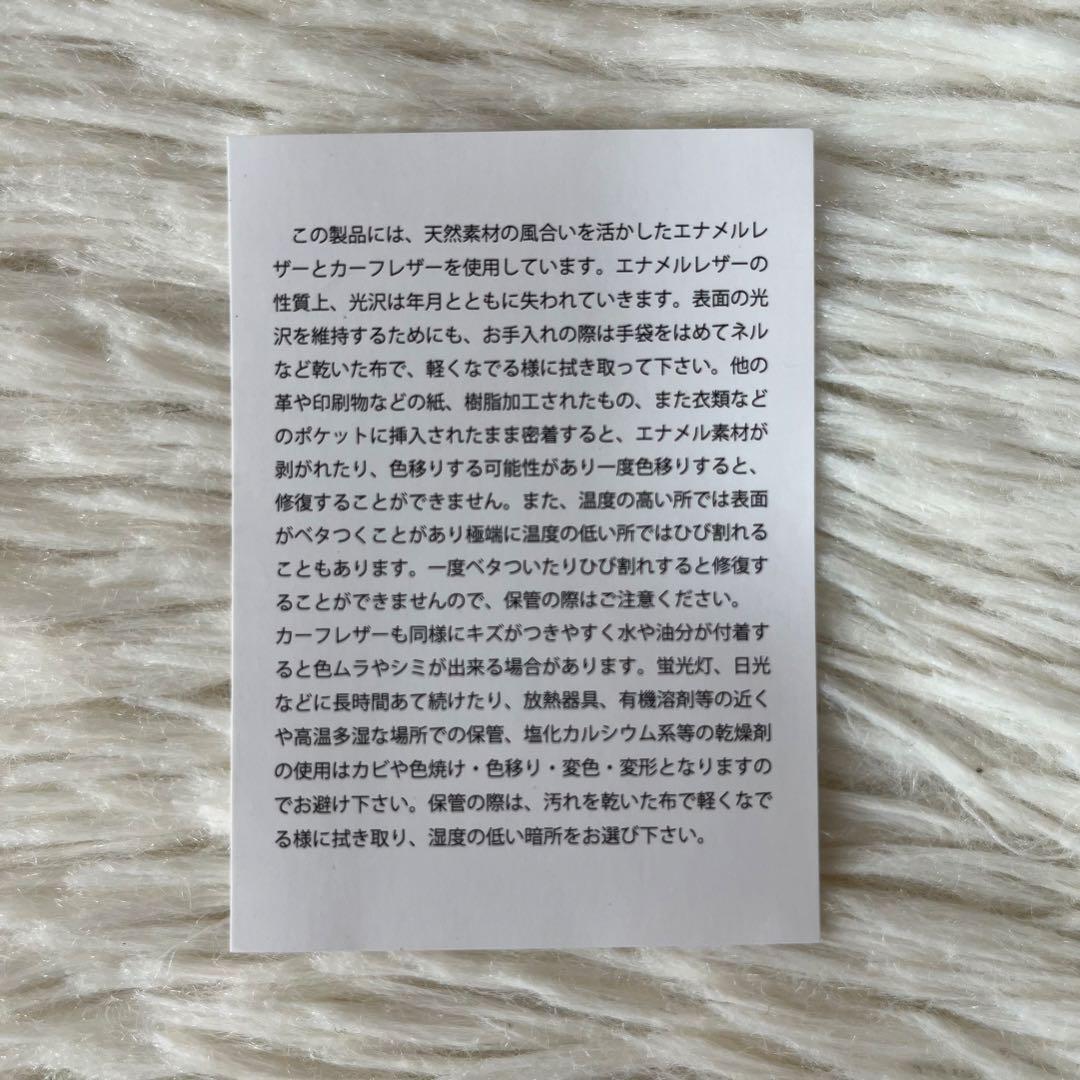 この製品には、天然素材の風合いを活かしたエナメルレ
ザーとカーフレザーを使用しています。エナメルレザーの
性質上、光沢は年月とともに失われていきます。表面の光
沢を維持するためにも、お手入れの際は手袋をはめてネル
など乾いた布で、軽くなでる様に拭き取って下さい。他の
革や印刷物などの紙、樹脂加工されたもの、また衣類など
のポケットに挿入されたまま密着すると、エナメル素材が
剥がれたり、色移りする可能性があり一度色移りすると、
修復することができません。また、温度の高い所では表面
がベタつくことがあり極端に温度の低い所ではひび割れる
こともあります。一度ベタついたりひび割れすると修復す
ることができませんので、保管の際はご注意ください。
カーフレザーも同様にキズがつきやすく水や油分が付着す
ると色ムラやシミが出来る場合があります。蛍光灯、日光
などに長時間あて続けたり、放熱器具、有機溶剤等の近く
や高温多湿な場所での保管、塩化カルシウム系等の乾燥剤
の使用はカビや色焼け・色移り・変色・変形となりますの
でお避け下さい。保管の際は、汚れを乾いた布で軽くなで
る様に拭き取り、湿度の低い暗所をお選び下さい。